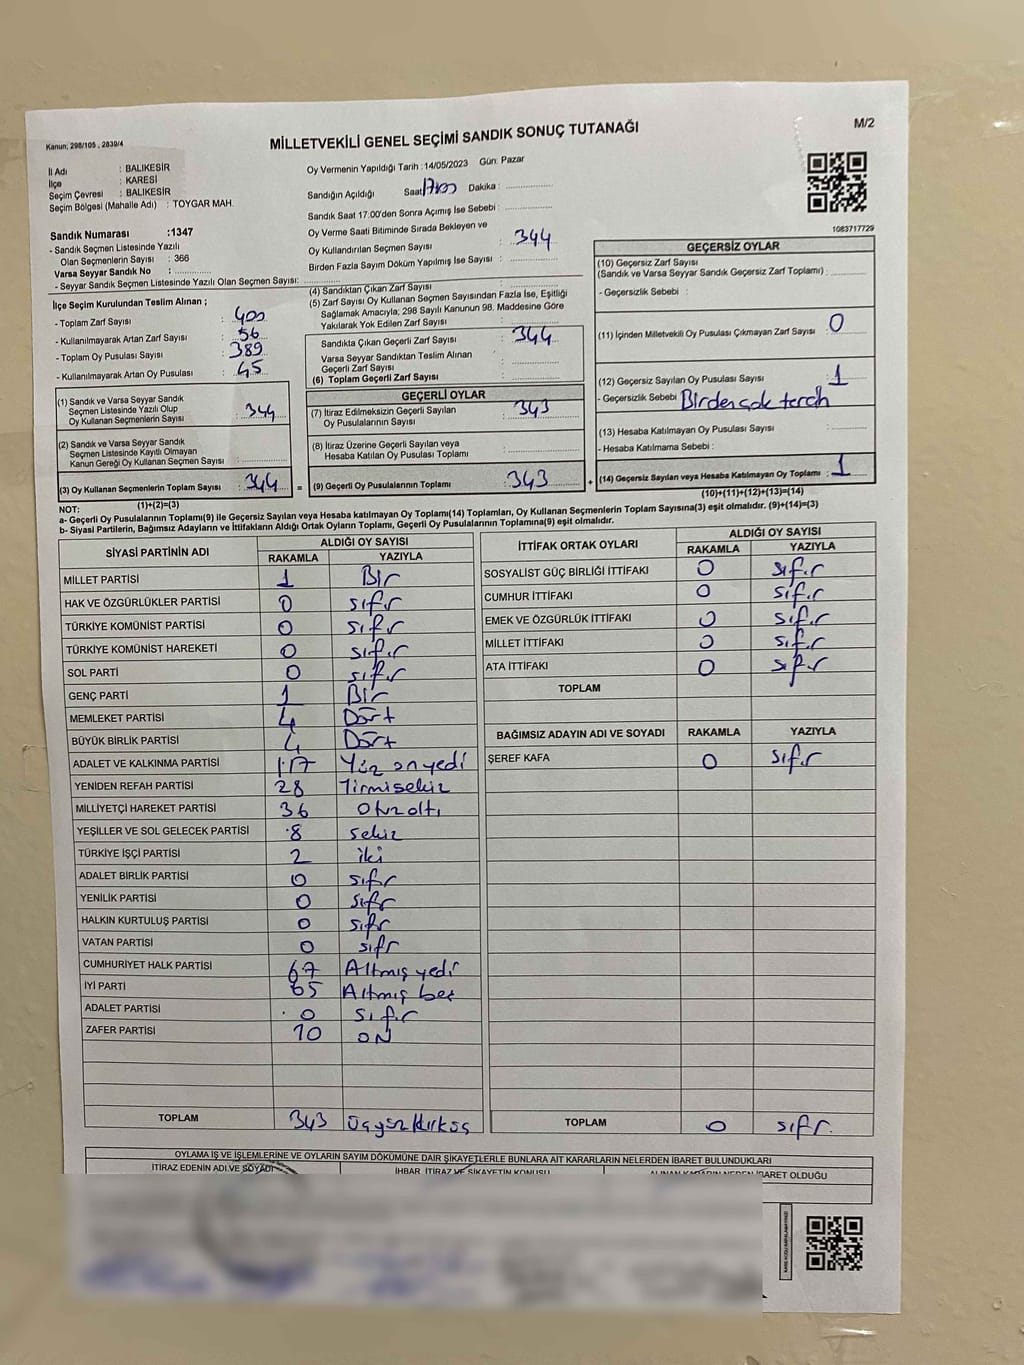 Kanun; 298/105 , 2839/4
MİLLETVEKİLİ GENEL SEÇİMİ SANDIK SONUÇ TUTANAĞI
M/2
İl Adı : BALIKESİR
İlçe : KARESİ
Seçim Çevresi : BALIKESİR
Seçim Bölgesi (Mahalle Adı) : TOYGAR MAH.
Sandık Numarası :1347
- Sandık Seçmen Listesinde Yazılı
Olan Seçmenlerin Sayısı : 366
Varsa Seyyar Sandık No :
- Seyyar Sandık Seçmen Listesinde Yazılı Olan Seçmen Sayısı:
Oy Vermenin Yapıldığı Tarih : 14/05/2023 Gün: Pazar
Sandığın Açıldığı Saat Dakika :
Sandık Saat 17:00'den Sonra Açımış İse Sebebi :
Oy Verme Saati Bitiminde Sırada Bekleyen ve
Oy Kullandırılan Seçmen Sayısı : 344
Birden Fazla Sayım Döküm Yapılmış İse Sayısı :
1083717729
İlçe Seçim Kurulundan Teslim Alınan ;
- Toplam Zarf Sayısı : 400
- Kullanılmayarak Artan Zarf Sayısı : 56
- Toplam Oy Pusulası Sayısı : 389
- Kullanılmayarak Artan Oy Pusulası : 45
(1) Sandık ve Varsa Seyyar Sandık
Seçmen Listesinde Yazılı Olup
Oy Kullanan Seçmenlerin Sayısı : 344
(2) Sandık ve Varsa Seyyar Sandık
Seçmen Listesinde Kayıtlı Olmayan
Kanun Gereği Oy Kullanan Seçmen Sayısı :
(3) Oy Kullanan Seçmenlerin Toplam Sayısı : 344 =
(1)+(2)=(3)
(4) Sandıktan Çıkan Zarf Sayısı :
(5) Zarf Sayısı Oy Kullanan Seçmen Sayısından Fazla İse, Eşitliği
Sağlamak Amacıyla; 298 Sayılı Kanunun 98. Maddesine Göre
Yakılarak Yok Edilen Zarf Sayısı :
Sandıkta Çıkan Geçerli Zarf Sayısı : 344
Varsa Seyyar Sandıktan Teslim Alınan
Geçerli Zarf Sayısı :
(6) Toplam Geçerli Zarf Sayısı :
GEÇERLİ OYLAR
(7) İtiraz Edilmeksizin Geçerli Sayılan
Oy Pusulalarının Sayısı : 343
(8) İtiraz Üzerine Geçerli Sayılan veya
Hesaba Katılan Oy Pusulası Toplamı :
(9) Geçerli Oy Pusulalarının Toplamı : 343 +
GEÇERSİZ OYLAR
(10) Geçersiz Zarf Sayısı
(Sandık ve Varsa Seyyar Sandık Geçersiz Zarf Toplamı) :
- Geçersizlik Sebebi :
(11) İçinden Milletvekili Oy Pusulası Çıkmayan Zarf Sayısı : 0
(12) Geçersiz Sayılan Oy Pusulası Sayısı : 1
- Geçersizlik Sebebi : Birden çok tercih
(13) Hesaba Katılmayan Oy Pusulası Sayısı :
- Hesaba Katılmama Sebebi :
(14) Geçersiz Sayılan veya Hesaba Katılmayan Oy Toplamı : 1
(10)+(11)+(12)+(13)=(14)
NOT:
a- Geçerli Oy Pusulalarının Toplamı(9) ile Geçersiz Sayılan veya Hesaba katılmayan Oy Toplamı(14) Toplamları, Oy Kullanan Seçmenlerin Toplam Sayısına(3) eşit olmalıdır. (9)+(14)=(3)
b- Siyasi Partilerin, Bağımsız Adayların ve İttifakların Aldığı Ortak Oyların Toplamı, Geçerli Oy Pusulalarının Toplamına(9) eşit olmalıdır.
SİYASİ PARTİNİN ADI ALDIĞI OY SAYISI
RAKAMLA YAZIYLA
MİLLET PARTİSİ 1 Bir
HAK VE ÖZGÜRLÜKLER PARTİSİ 0 sıfır
TÜRKİYE KOMÜNİST PARTİSİ 0 sıfır
TÜRKİYE KOMÜNİST HAREKETİ 0 sıfır
SOL PARTİ 0 sıfır
GENÇ PARTİ 1 Bir
MEMLEKET PARTİSİ 4 Dört
BÜYÜK BİRLİK PARTİSİ 4 Dört
ADALET VE KALKINMA PARTİSİ 117 Yüz onyedi
YENİDEN REFAH PARTİSİ 28 Yirmisekiz
MİLLİYETÇİ HAREKET PARTİSİ 36 Otuzaltı
YEŞİLLER VE SOL GELECEK PARTİSİ 8 sekiz
TÜRKİYE İŞÇİ PARTİSİ 2 iki
ADALET BİRLİK PARTİSİ 0 sıfır
YENİLİK PARTİSİ 0 sıfır
HALKIN KURTULUŞ PARTİSİ 0 sıfır
VATAN PARTİSİ 0 sıfır
CUMHURİYET HALK PARTİSİ 67 Altmış yedi
İYİ PARTİ 65 Altmış beş
ADALET PARTİSİ 0 sıfır
ZAFER PARTİSİ 10 ON
TOPLAM 343 üçyüzkırküç
İTTİFAK ORTAK OYLARI ALDIĞI OY SAYISI
RAKAMLA YAZIYLA
SOSYALİST GÜÇ BİRLİĞİ İTTİFAKI 0 sıfır
CUMHUR İTTİFAKI 0 sıfır
EMEK VE ÖZGÜRLÜK İTTİFAKI 0 sıfır
MİLLET İTTİFAKI 0 sıfır
ATA İTTİFAKI 0 sıfır
TOPLAM
BAĞIMSIZ ADAYIN ADI VE SOYADI RAKAMLA YAZIYLA
ŞEREF KAFA 0 sıfır
TOPLAM 0 sıfır.
OYLAMA İŞ VE İŞLEMLERİNE VE OYLARIN SAYIM DÖKÜMÜNE DAİR ŞİKAYETLERLE BUNLARA AİT KARARLARIN NELERDEN İBARET BULUNDUKLARI
İTİRAZ EDENİN ADI VE SOYADI İHBAR, İTİRAZ VE ŞİKAYETİN KONUSU ALINAN KARARIN NEDEN İBARET OLDUĞU